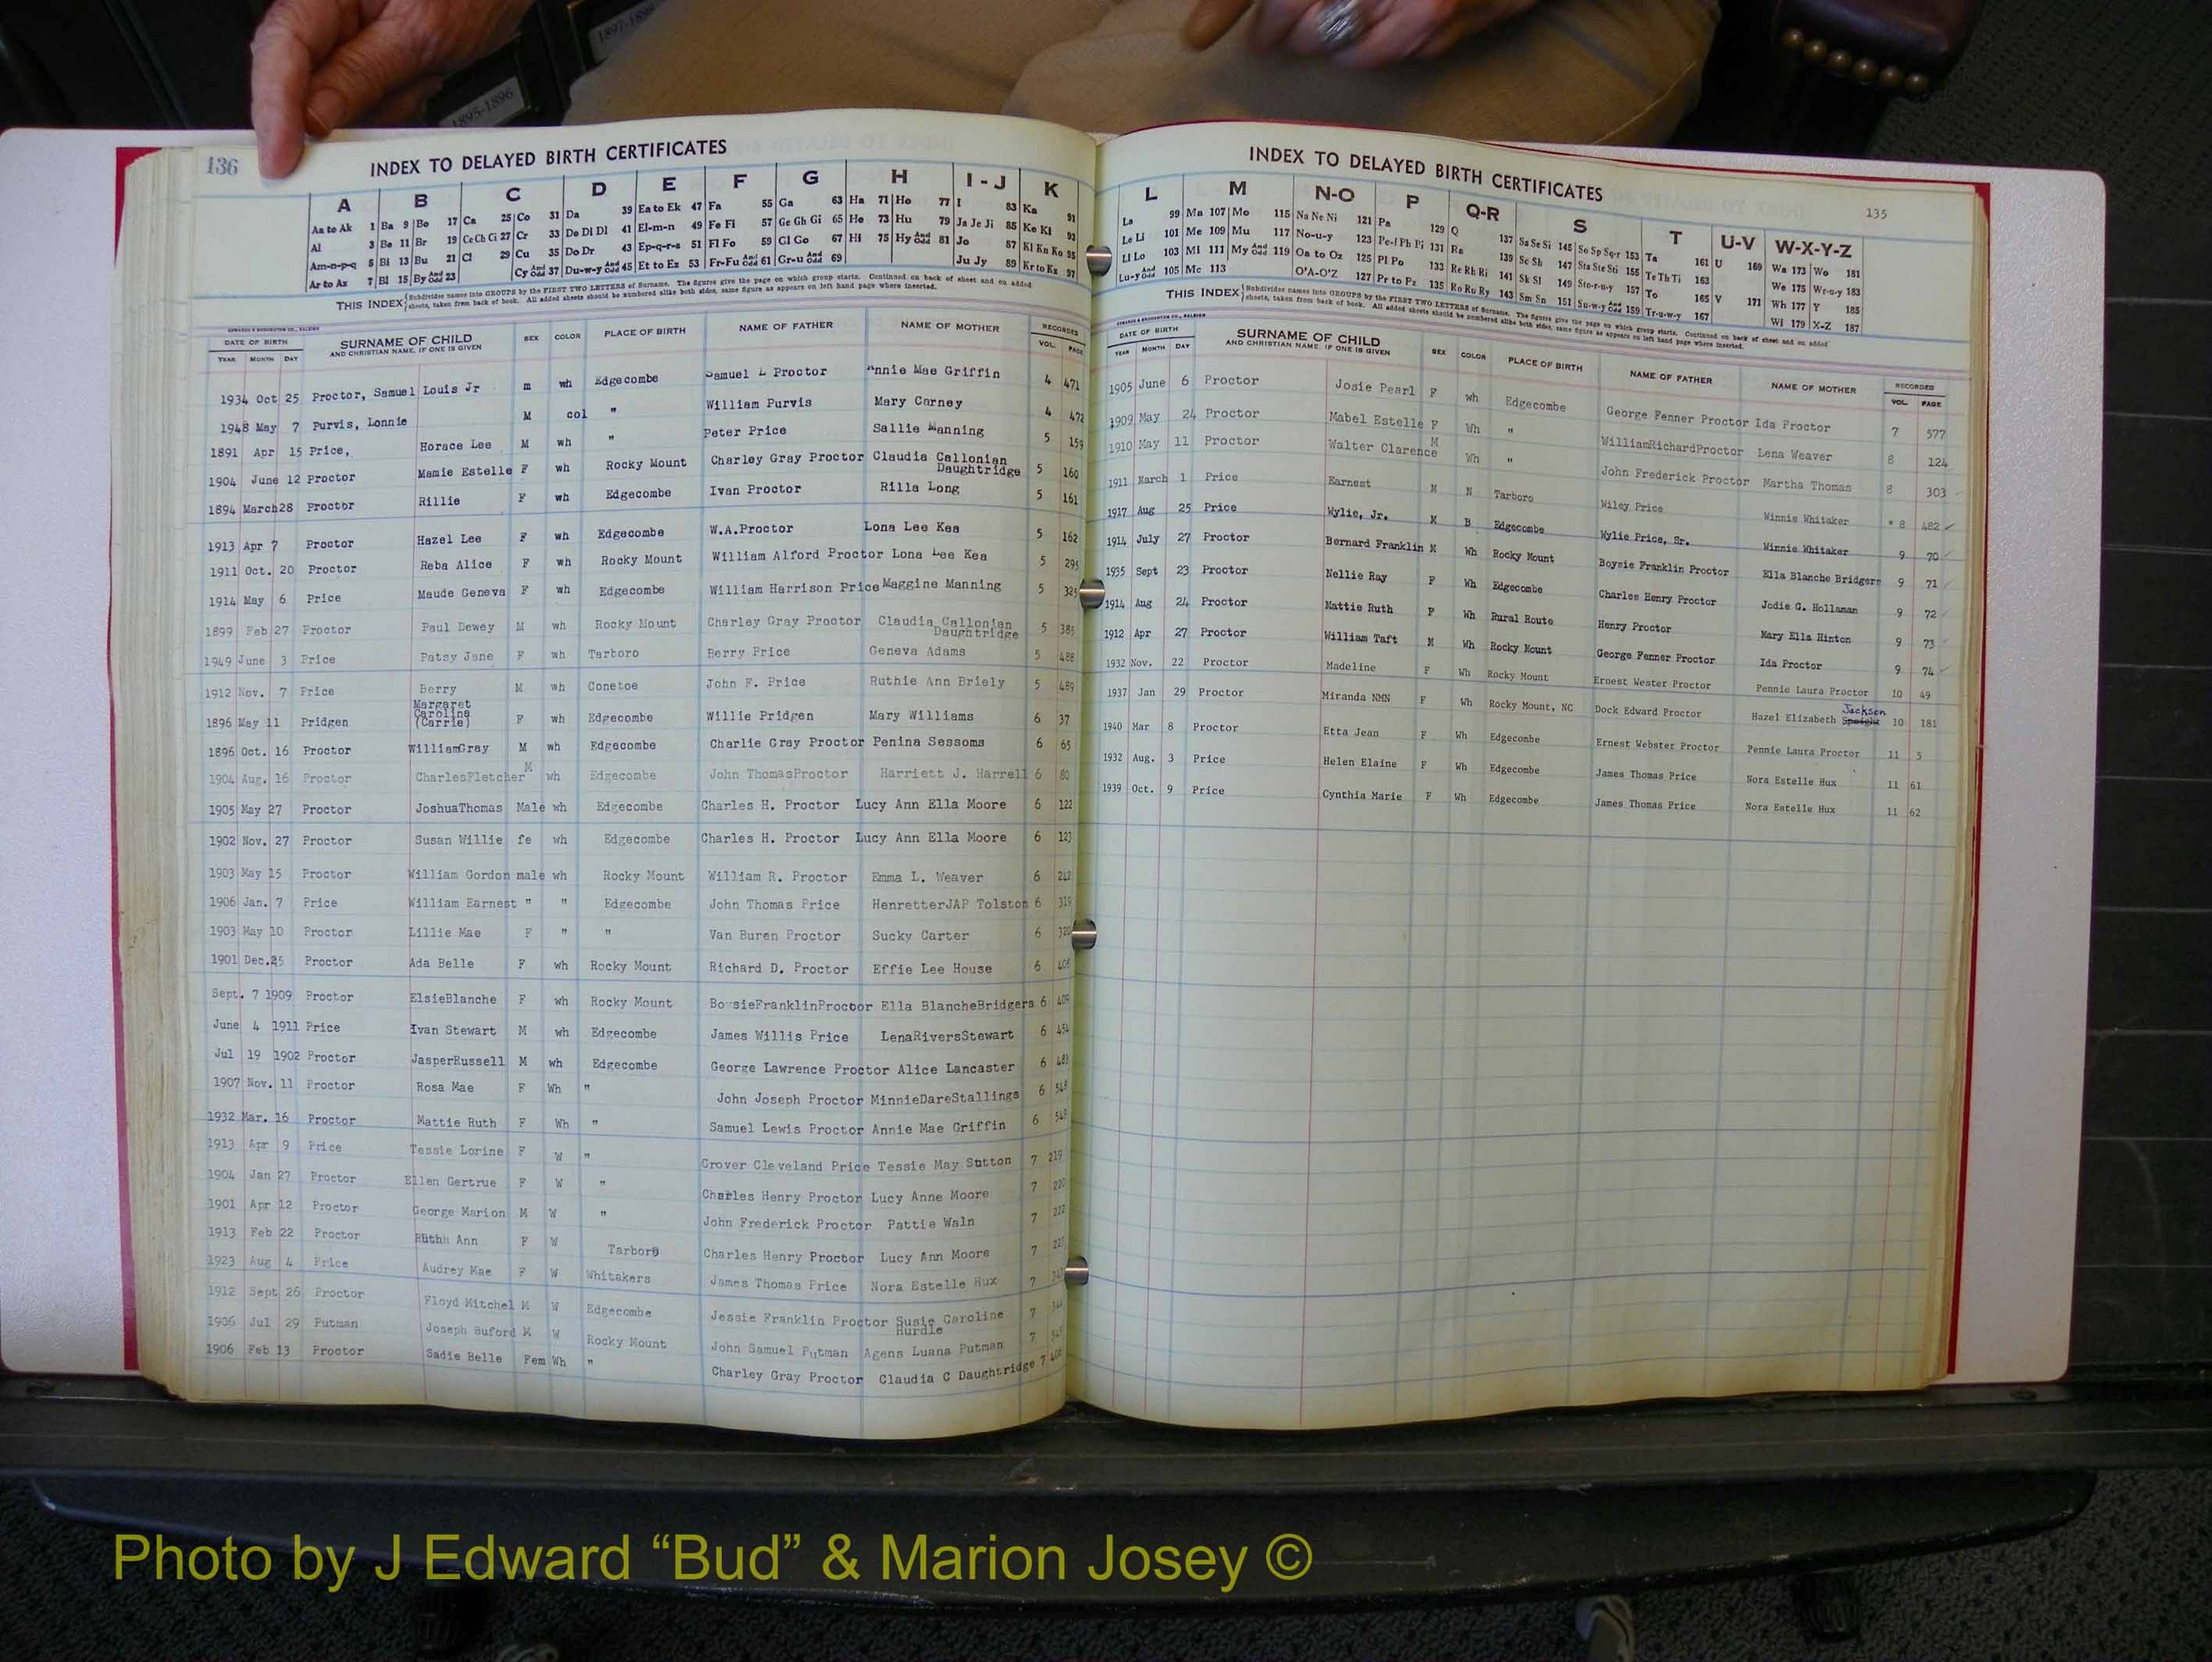 1897-1898
1895-1896
136
INDEX TO DELAYED BIRTH CERTIFICATES
A B C D E F G H I - J K
Aa to Ak 1 Ba 9 Bo 17 Ca 25 Co 31 Da 39 Ea to Ek 47 Fa 55 Ga 63 Ha 71 Ho 77 I 83 Ka 91
Al 3 Be 11 Br 19 Ce Ch Ci 27 Cr 33 De Di Dl 41 El-m-n 49 Fe Fi 57 Ge Gh Gi 65 He 73 Hu 79 Ja Je Ji 85 Ke Ki 93
Am-n-p-q 5 Bi 13 Bu 21 Cl 29 Cu 35 Do Dr 43 Ep-q-r-s 51 Fl Fo 59 Gl Go 67 Hi 75 Hy And Odd 81 Jo 87 Kl Kn Ko 95
Ar to Az 7 Bl 15 By And Odd 23 Cy And Odd 37 Du-w-y And Odd 45 Et to Ez 53 Fr-Fu And Odd 61 Gr-u And Odd 69 Ju Jy 89 Kr to Kz 97
THIS INDEX { Subdivides names into GROUPS by the FIRST TWO LETTERS of Surname. The figures give the page on which group starts. Continued on back of sheet and on added
sheets, taken from back of book. All added sheets should be numbered alike both sides, same figure as appears on left hand page where inserted.
EDWARDS & BROUGHTON CO., RALEIGH
DATE OF BIRTH SURNAME OF CHILD AND CHRISTIAN NAME, IF ONE IS GIVEN SEX COLOR PLACE OF BIRTH NAME OF FATHER NAME OF MOTHER RECORDED
YEAR MONTH DAY VOL. PAGE
1934 Oct 25 Proctor, Samuel Louis Jr m wh Edgecombe Samuel L Proctor Annie Mae Griffin 4 471
1948 May 7 Purvis, Lonnie M col " William Purvis Mary Carney 4 472
1891 Apr 15 Price, Horace Lee M wh " Peter Price Sallie Manning 5 159
1904 June 12 Proctor Mamie Estelle F wh Rocky Mount Charley Gray Proctor Claudia Callonian Daughtridge 5 160
1894 March 28 Proctor Rillie F wh Edgecombe Ivan Proctor Rilla Long 5 161
1913 Apr 7 Proctor Hazel Lee F wh Edgecombe W.A.Proctor Lona Lee Kea 5 162
1911 Oct. 20 Proctor Reba Alice F wh Rocky Mount William Alford Proctor Lona Lee Kea 5 295
1914 May 6 Price Maude Geneva F wh Edgecombe William Harrison Price Maggine Manning 5 325
1899 Feb 27 Proctor Paul Dewey M wh Rocky Mount Charley Gray Proctor Claudia Callonian Daughtridge 5 385
1949 June 3 Price Patsy Jane F wh Tarboro Berry Price Geneva Adams 5 488
1912 Nov. 7 Price Berry M wh Conetoe John F. Price Ruthie Ann Briely 5 489
1896 May 11 Pridgen Margaret Carolina (Carrie) F wh Edgecombe Willie Pridgen Mary Williams 6 37
1896 Oct. 16 Proctor WilliamGray M wh Edgecombe Charlie Gray Proctor Penina Sessoms 6 65
1904 Aug. 16 Proctor CharlesFletcher M wh Edgecombe John ThomasProctor Harriett J. Harrell 6 80
1905 May 27 Proctor JoshuaThomas Male wh Edgecombe Charles H. Proctor Lucy Ann Ella Moore 6 122
1902 Nov. 27 Proctor Susan Willie fe wh Edgecombe Charles H. Proctor Lucy Ann Ella Moore 6 123
1903 May 15 Proctor William Gordon male wh Rocky Mount William R. Proctor Emma L. Weaver 6 242
1906 Jan. 7 Price William Earnest " " Edgecombe John Thomas Price HenretterJAP Tolston 6 319
1903 May 10 Proctor Lillie Mae F " " Van Buren Proctor Sucky Carter 6 320
1901 Dec.25 Proctor Ada Belle F wh Rocky Mount Richard D. Proctor Effie Lee House 6 408
Sept. 7 1909 Proctor ElsieBlanche F wh Rocky Mount BoysieFranklinProctor Ella BlancheBridgers 6 409
June 4 1911 Price Ivan Stewart M wh Edgecombe James Willis Price LenaRiversStewart 6 454
Jul 19 1902 Proctor JasperRussell M wh Edgecombe George Lawrence Proctor Alice Lancaster 6 483
1907 Nov. 11 Proctor Rosa Mae F Wh " John Joseph Proctor MinnieDareStallings 6 548
1932 Mar. 16 Proctor Mattie Ruth F Wh " Samuel Lewis Proctor Annie Mae Griffin 6 549
1913 Apr 9 Price Tessie Lorine F W " Grover Cleveland Price Tessie May Sutton 7 219
1904 Jan 27 Proctor Ellen Gertrue F W " Charles Henry Proctor Lucy Anne Moore 7 220
1901 Apr 12 Proctor George Marion M W " John Frederick Proctor Pattie Waln 7 222
1913 Feb 22 Proctor Ruthh Ann F W Tarboro Charles Henry Proctor Lucy Ann Moore 7 227
1923 Aug 4 Price Audrey Mae F W Whitakers James Thomas Price Nora Estelle Hux 7
1912 Sept 26 Proctor Floyd Mitchel M W Edgecombe Jessie Franklin Proctor Susie Caroline Hurdle 7
1906 Jul 29 Putman Joseph Buford M W Rocky Mount John Samuel Putman Agens Luana Putman 7
1906 Feb 13 Proctor Sadie Belle Fem Wh " Charley Gray Proctor Claudia C Daughtridge 7
INDEX TO DELAYED BIRTH CERTIFICATES
135
L M N-O P Q-R S T U-V W-X-Y-Z
La 99 Ma 107 Mo 115 Na Ne Ni 121 Pa 129 Q 137 Sa Se Si 145 So Sp Sq-r 153 Ta 161 U 169 Wa 173 Wo 181
Le Li 101 Me 109 Mu 117 No-u-y 123 Pe-f Ph Pi 131 Ra 139 Sc Sh 147 Sta Ste Sti 155 Te Th Ti 163 We 175 Wr-u-y 183
Ll Lo 103 Mi 111 My And Odd 119 Oa to Oz 125 Pl Po 133 Re Rh Ri 141 Sk Sl 149 Sto-r-u-y 157 To 165 V 171 Wh 177 Y 185
Lu-y And Odd 105 Mc 113 O'A-O'Z 127 Pr to Pz 135 Ro Ru Ry 143 Sm Sn 151 Su-w-y And Odd 159 Tr-u-w-y 167 Wi 179 X-Z 187
THIS INDEX { Subdivides names into GROUPS by the FIRST TWO LETTERS of Surname. The figures give the page on which group starts. Continued on back of sheet and on added
sheets, taken from back of book. All added sheets should be numbered alike both sides, same figure as appears on left hand page where inserted.
EDWARDS & BROUGHTON CO., RALEIGH
DATE OF BIRTH SURNAME OF CHILD AND CHRISTIAN NAME, IF ONE IS GIVEN SEX COLOR PLACE OF BIRTH NAME OF FATHER NAME OF MOTHER RECORDED
YEAR MONTH DAY VOL. PAGE
1905 June 6 Proctor Josie Pearl F wh Edgecombe George Fenner Proctor Ida Proctor 7 577
1909 May 24 Proctor Mabel Estelle F Wh " WilliamRichardProctor Lena Weaver 8 124
1910 May 11 Proctor Walter Clarence M Wh " John Frederick Proctor Martha Thomas 8 303
1911 March 1 Price Earnest M N Tarboro Wiley Price Winnie Whitaker * 8 482
1917 Aug 25 Price Wylie, Jr. M B Edgecombe Wylie Price, Sr. Winnie Whitaker 9 70
1914 July 27 Proctor Bernard Franklin M Wh Rocky Mount Boysie Franklin Proctor Ella Blanche Bridgers 9 71
1935 Sept 23 Proctor Nellie Ray F Wh Edgecombe Charles Henry Proctor Jodie G. Hollaman 9 72
1914 Aug 24 Proctor Mattie Ruth F Wh Rural Route Henry Proctor Mary Ella Hinton 9 73
1912 Apr 27 Proctor William Taft M Wh Rocky Mount George Fenner Proctor Ida Proctor 9 74
1932 Nov. 22 Proctor Madeline F Wh Rocky Mount Ernest Wester Proctor Pennie Laura Proctor 10 49
1937 Jan 29 Proctor Miranda NMN F Wh Rocky Mount, NC Dock Edward Proctor Hazel Elizabeth Speight Jackson 10 181
1940 Mar 8 Proctor Etta Jean F Wh Edgecombe Ernest Webster Proctor Pennie Laura Proctor 11 5
1932 Aug. 3 Price Helen Elaine F Wh Edgecombe James Thomas Price Nora Estelle Hux 11 61
1939 Oct. 9 Price Cynthia Marie F Wh Edgecombe James Thomas Price Nora Estelle Hux 11 62
Photo by J Edward “Bud” & Marion Josey ©